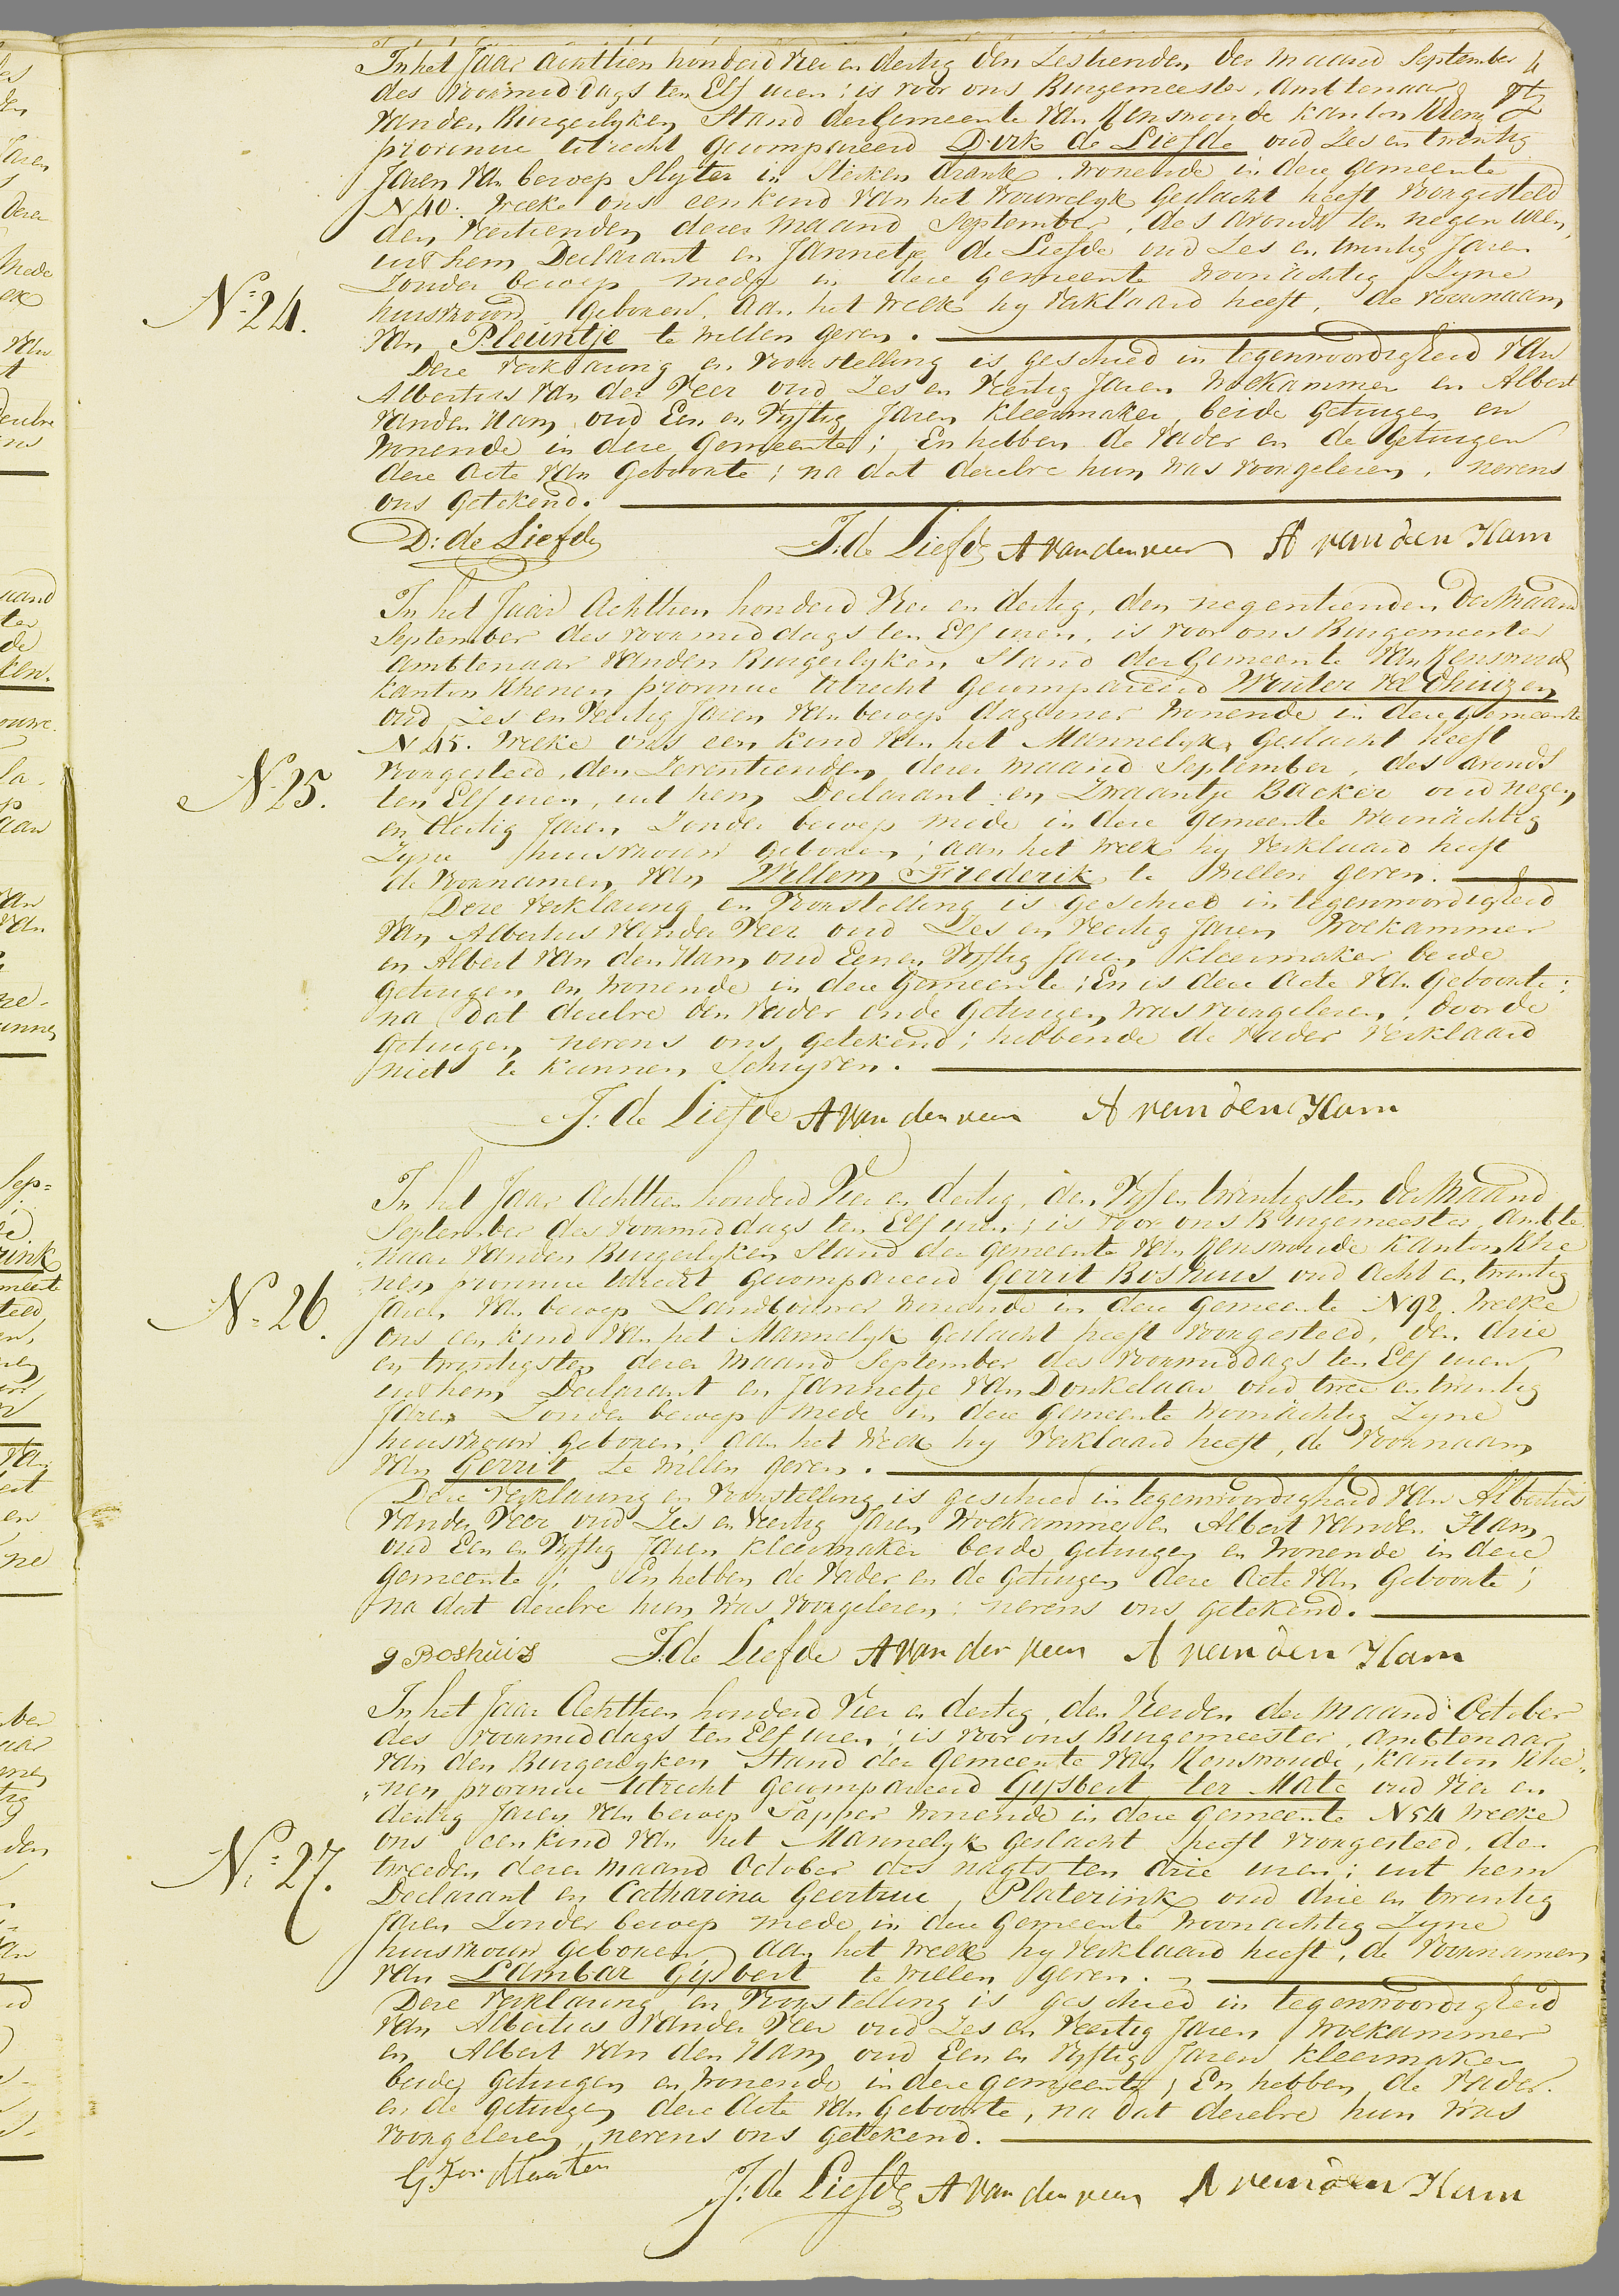 In het Jaar Achttien honderd Vier en dertig den Zestienden der maand September
des voormiddags ten Elf uren; is voor ons Burgemeester, Ambtenaar
van den Burgerlyken Stand der Gemeente van Renswoude kanton Rhenen
provincie Utrecht gecompareerd Dirk de Liefde oud Zes en twintig
Jaren van beroep Slyter in Sterken drank, wonende in deze gemeente
N 40. welke ons een kind van het vrouwelyk geslacht heeft voorgesteld
den veertienden dezer maand September, des avonds ten negen uren,
uit hem Declarant en Jannetje de Liefde oud Zes en twintig Jaren
Zonder beroep mede in deze gemeente woonächtig Zyne
N:24.
huisvrouw Geboren. Aan het welk hy verklaard heeft, de voornaam
van Pleuntje te willen geven.
Deze verklaring en voorstelling is geschied in tegenwoordigheid van
Albertus van der Veer oud Zes en Veertig Jaren Wolkammer en Albert
van den Ham oud Een en Vyftig Jaren Kleermaker beide getuigen en
wonende in deze Gemeente; En hebben de Vader en de Getuigen
deze Acte van Geboorte; na dat dezelve hun was voorgelezen, nevens
ons getekend.
D: de Liefde J. de Liefde A van der veer A van den Ham
In het Jaar Achttien honderd Vier en dertig, den negentienden der Maand
September des voormiddags ten Elf uren, is voor ons Burgemeester
Ambtenaar van den Burgerlyken Stand der Gemeente van Renswoude
kanton Rhenen provincie Utrecht gecompareerd Wouter Veldhuizen
oud Zes en Veertig Jaren van beroep daglooner wonende in deze Gemeente
N 45. welke ons een kind van het Mannelyk Geslacht heeft
voorgesteld, den Zeventienden dezer maand September, des avonds
N:25.
ten Elf uren, uit hem Declarant en Zwaantje Backer oud negen
en dertig Jaren Zonder beroep mede in deze gemeente woonächtig
Zyne huisvrouw geboren; aan het welk hy verklaard heeft
de voornamen van Willem Frederik te willen geven.
Deze verklaring en Voorstelling is geschied in tegenwoordigheid
van Albertus van der Veer oud Zes en veertig Jaren Wolkammer
en Albert van den Ham oud Een en Vyftig Jaren Kleermaker beide
getuigen en wonende in deze Gemeente; En is deze Acte van Geboorte;
na dat dezelve den Vader en de Getuigen was voorgelezen, door de
getuigen nevens ons getekend; hebbende de Vader verklaard
niet te kunnen schryven.
J: de Liefde A van der veer A van den Ham
In het Jaar Achttien honderd Vier en dertig, den Vyf en twintigsten der Maand
September des voormiddags ten Elf uren; is voor ons Burgemeester, Ambte
naar van den Burgerlyken Stand der gemeente van Renswoude Kanton Rhe
nen provincie Utrecht gecompareerd Gerrit Boshuis oud Acht en twintig
N:26.
Jaren van beroep Landbouwer wonende in deze gemeente N 92. welke
ons een kind van het Mannelyk geslacht heeft voorgesteld, den drie
en twintigsten dezer maand September des voormiddags ten Elf uren
uit hem Declarant en Jannetje van Donkelaar oud twee en twintig
Jaren Zonder beroep mede in deze gemeente woonächtig Zyne
huisvrouw geboren; aan het welk hy verklaard heeft, de voornaam
van Gerrit te willen geven.
Deze verklaring en voorstelling is geschied in tegenwoordigheid van Albertus
van der Veer oud Zes en Veertig Jaren Wolkammer en Albert van den Ham
oud Een en Vyftig Jaren Kleermaker beide getuigen en wonende in deze
gemeente; En hebben de Vader en de getuigen deze Acte van Geboorte;
na dat dezelve hun was voorgelezen; nevens ons getekend.
g Boshuis J. de Liefde A van der veer A van den Ham
In het Jaar Achttien honderd Vier en dertig, den Vierden der maand October
des voormiddags ten Elf uren; is voor ons Burgemeester, Ambtenaar
van den Burgerlyken Stand der Gemeente van Renswoude, kanton Rhe„
„nen provincie Utrecht gecompareerd Gysbert ter Mate oud Vier en
dertig Jaren van beroep Tapper wonende in deze gemeente N 54 welke
N:27.
ons een kind van het Mannelyk geslacht heeft voorgesteld, den
tweeden dezer maand October des nagts ten drie uren; uit hem
Declarant en Catharina Geertrui Platerink oud drie en twintig
Jaren Zonder beroep mede in deze gemeente woonachtig Zyne
huisvrouw geboren aan het welk hy verklaard heeft, de voornamen
van Lambar Gysbert te willen geven.
Deze verklaring en Voorstelling is geschied in tegenwoordigheid
van Albertus van der Veer oud Zes en Veertig Jaren Wolkammer
en Albert van den Ham oud Een en Vyftig Jaren Kleermaker
beide getuigen en wonende in deze gemeente; En hebben de Vader
en de getuigen deze Acte van Geboorte, na dat dezelve hun was
voorgelezen, nevens ons getekend.
J: de Liefde A van der veer A van den Ham